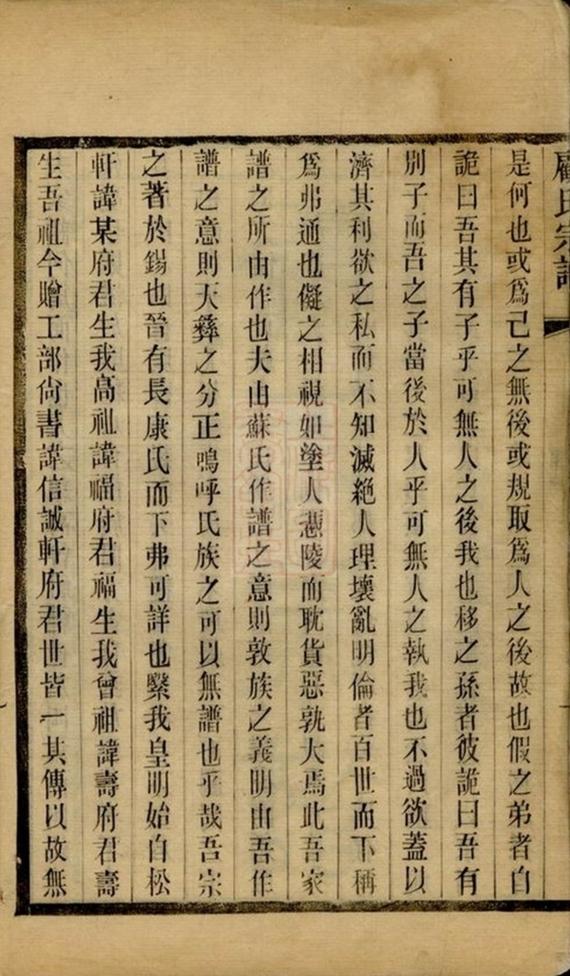 顧氏宗譜
是何也或爲己之無後或規取爲人之後故也假之弟者自
詭曰吾其有子乎可無人之後我也移之孫者彼詭曰吾有
別子而吾之子當後於人乎可無人之執我也不過欲蓋以
濟其利欲之私而不知滅絕人理壞亂明倫者百世而下稱
爲弗通也儗之相視如塗人慿陵而耽貨惡孰大焉此吾家
譜之所由作也夫由蘇氏作譜之意則敦族之義明由吾作
譜之意則天彝之分正嗚呼氏族之可以無譜也乎哉吾宗
之著於錫也晉有長康氏而下弗可詳也繄我皇明始自松
軒諱某府君生我高祖諱福府君福生我曾祖諱壽府君壽
生吾祖今贈工部尙書諱信誠軒府君世皆一其傳以故無